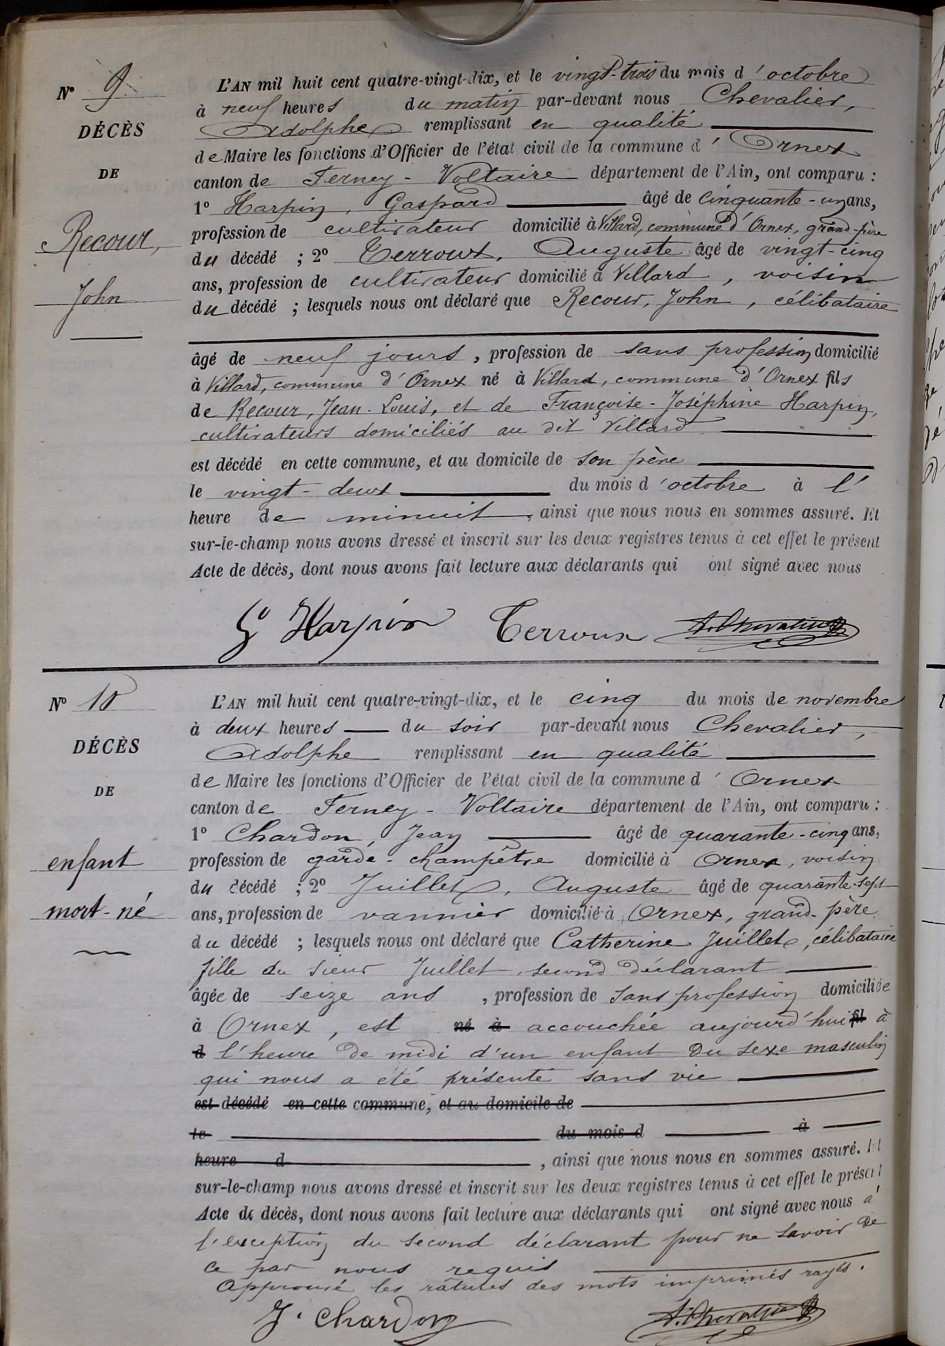 N° 9.
DÉCÈS
DE
Recour,
John
L'AN mil huit cent quatre-vingt-dix, et le vingt-trois du mois d'octobre
à neuf heures du matin par-devant nous Chevalier,
Adolphe remplissant en qualité
de Maire les fonctions d'Officier de l'état civil de la commune d'Ornex
canton de Ferney-Voltaire département de l'Ain, ont comparu :
1° Harpin, Gaspard âgé de cinquante-un ans,
profession de cultivateur domicilié à Villard, commune d'Ornex, grand-père
du décédé ; 2° Terroux, Auguste âgé de vingt-cinq
ans, profession de cultivateur domicilié à Villard, voisin
du décédé ; lesquels nous ont déclaré que Recour, John, célibataire
âgé de neuf jours, profession de sans profession domicilié
à Villard, commune d'Ornex né à Villard, commune d'Ornex fils
de Recour, Jean-Louis, et de Françoise-Joséphine Harpin,
cultivateurs domiciliés au dit Villard
est décédé en cette commune, et au domicile de son père
le vingt-deux du mois d'octobre à l'
heure de minuit, ainsi que nous nous en sommes assuré. Et
sur-le-champ nous avons dressé et inscrit sur les deux registres tenus à cet effet le présent
Acte de décès, dont nous avons fait lecture aux déclarants qui ont signé avec nous
G. Harpin Terroux A. Chevalier
N° 10
DÉCÈS
DE
enfant
mort-né
L'AN mil huit cent quatre-vingt-dix, et le cinq du mois de novembre
à deux heures du soir par-devant nous Chevalier,
Adolphe remplissant en qualité
de Maire les fonctions d'Officier de l'état civil de la commune d'Ornex
canton de Ferney-Voltaire département de l'Ain, ont comparu :
1° Chardon, Jean âgé de quarante-cinq ans,
profession de garde-champêtre domicilié à Ornex, voisin
du décédé ; 2° Juillet, Auguste âgé de quarante-sept
ans, profession de vannier domicilié à Ornex, grand-père
du décédé ; lesquels nous ont déclaré que Catherine Juillet, célibataire
fille du sieur Juillet, second déclarant
âgée de seize ans, profession de sans profession domiciliée
à Ornex, est né à accouchée aujourd'hui fil à
d l'heure de midi d'un enfant du sexe masculin
qui nous a été présenté sans vie
est décédé en cette commune, et au domicile de
le du mois d à
heure d, ainsi que nous nous en sommes assuré. Et
sur-le-champ nous avons dressé et inscrit sur les deux registres tenus à cet effet le présent
Acte de décès, dont nous avons fait lecture aux déclarants qui ont signé avec nous à
l'exception du second déclarant pour ne savoir de
ce par nous requis
Approuvé les ratures des mots imprimés rayés.
J. Chardon A. Chevalier